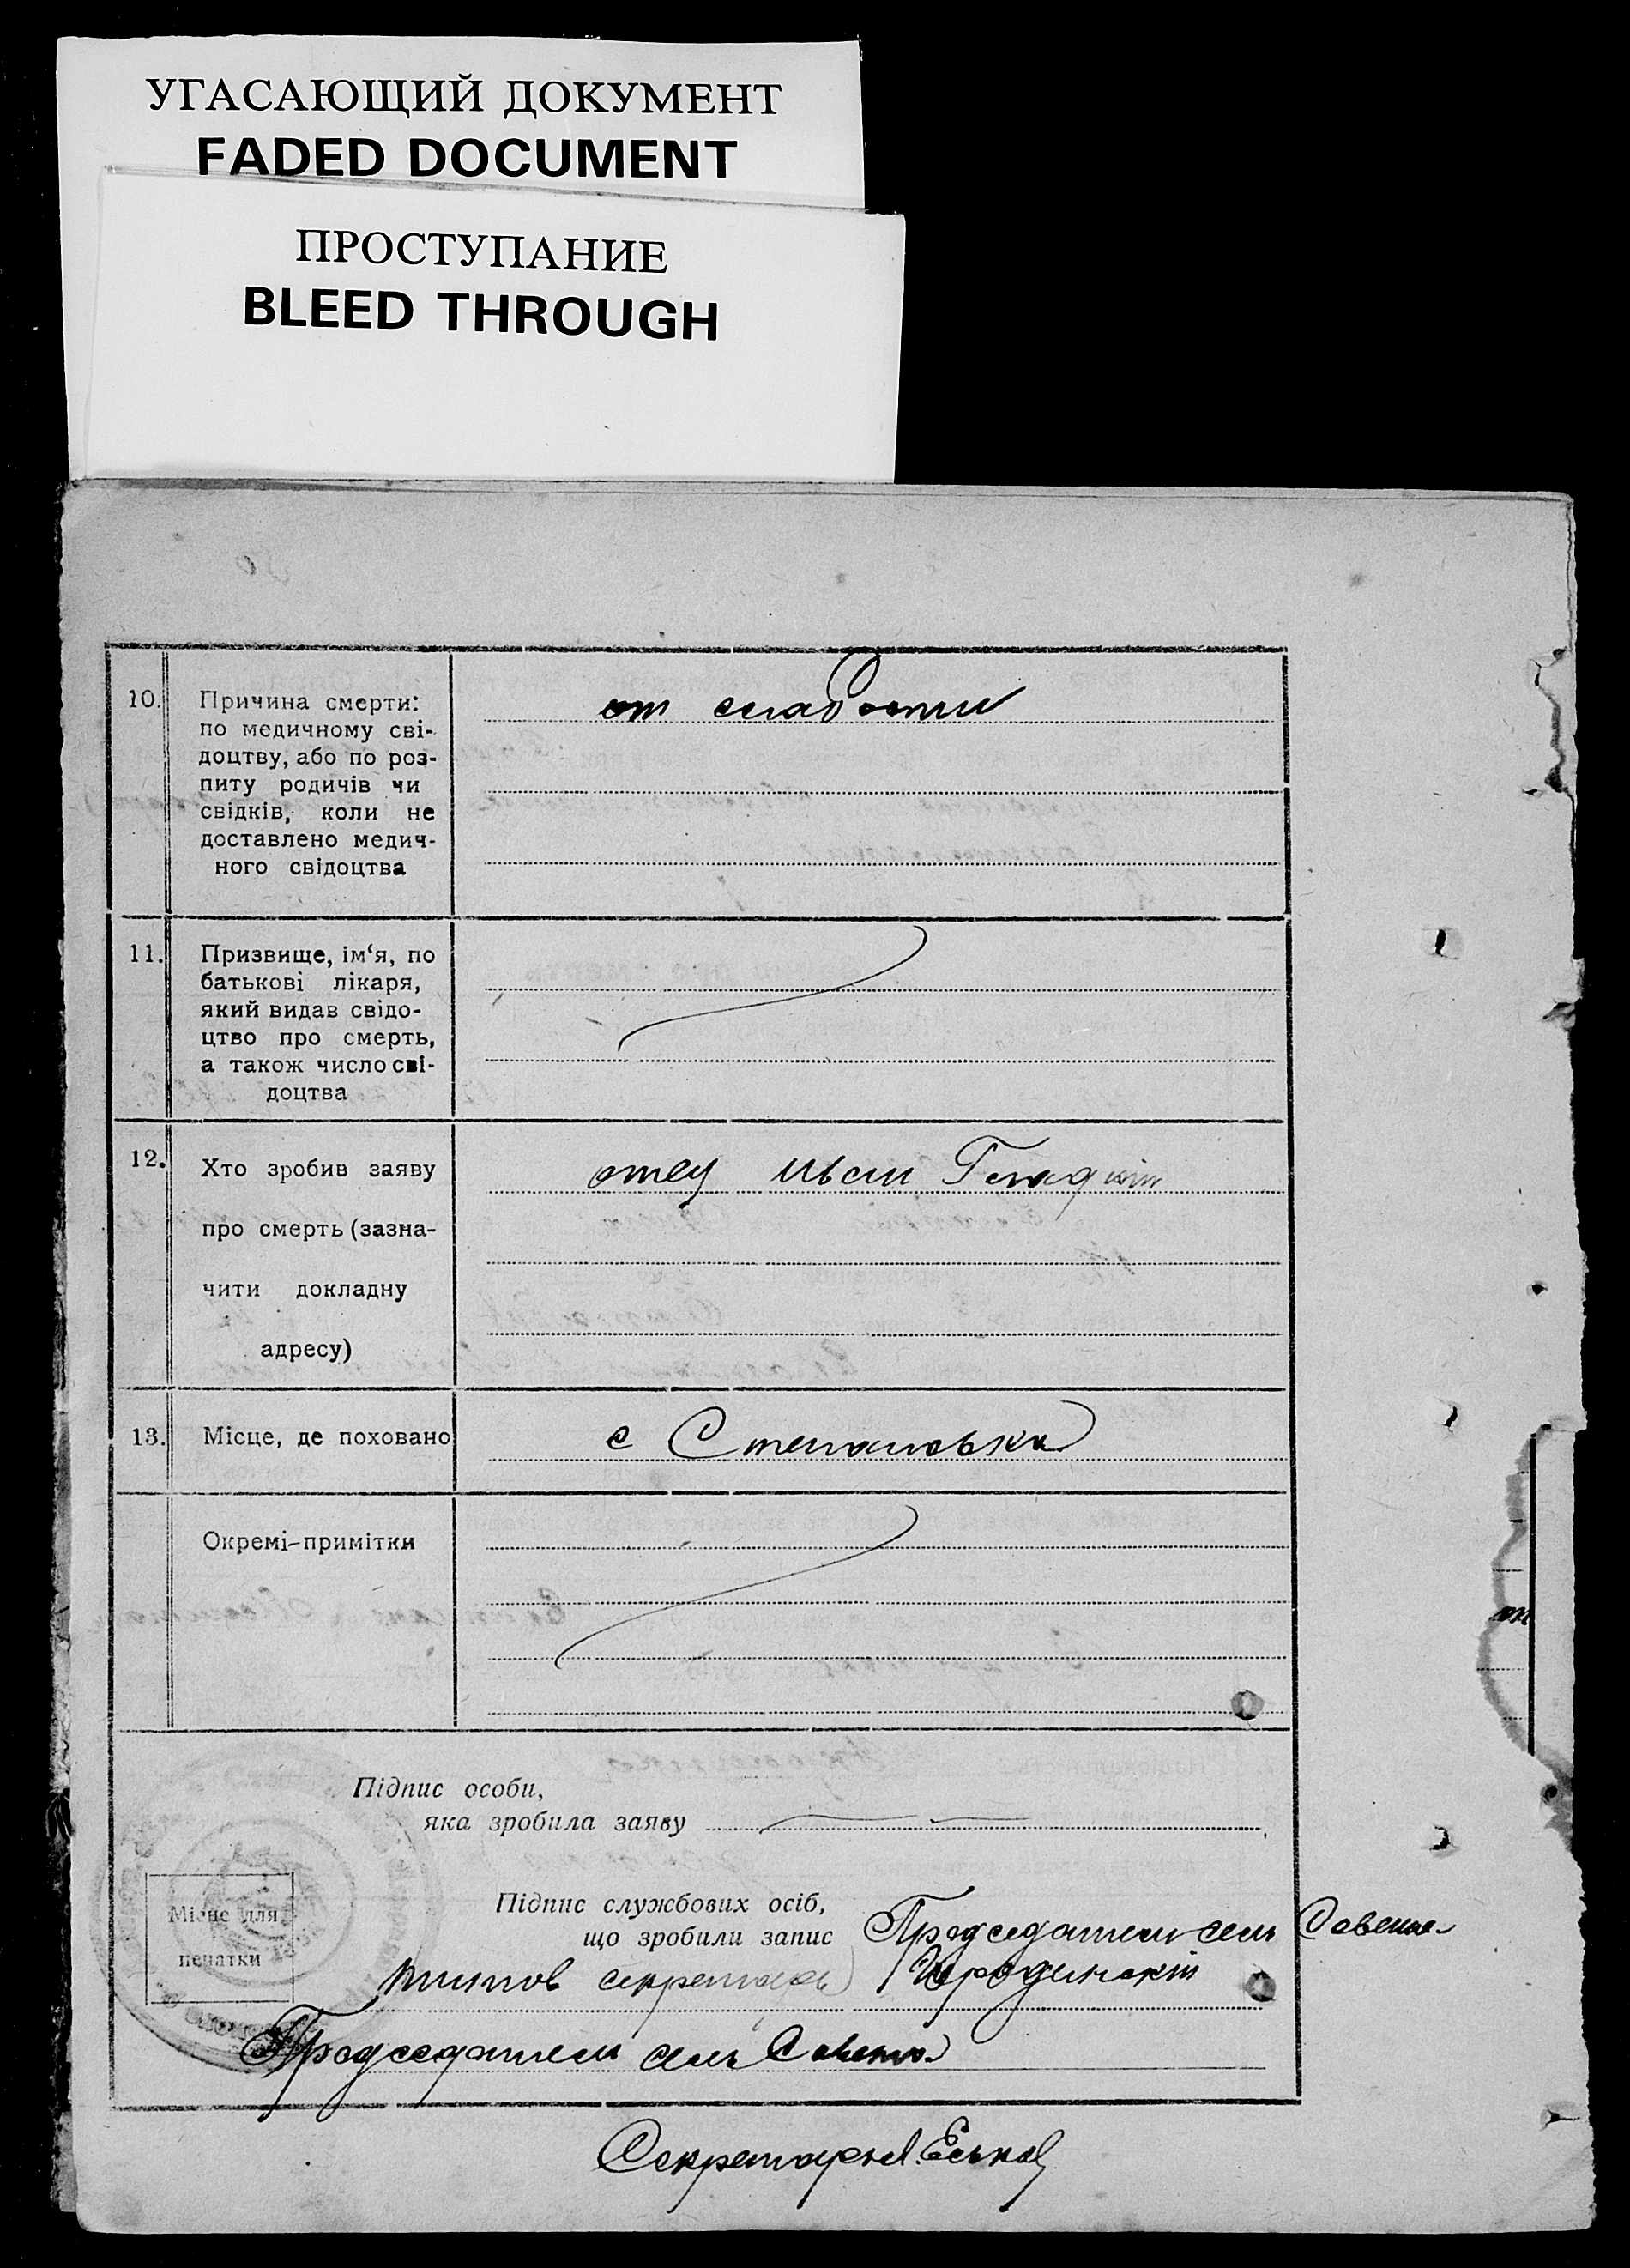 УГАСАЮЩИЙ ДОКУМЕНТ
FADED DOCUMENT
ПРОСТУПАНИЕ
BLEED THROUGH
10. Причина смерти:
по медичному сві-
доцтву, або по роз-
питу родичів чи
свідків, коли не
доставлено медич-
ного свідоцтва
от слабости
11. Призвище, ім‘я, по
батькові лікаря,
який видав свідо-
цтво про смерть,
а також число сві-
доцтва
12. Хто зробив заяву
про смерть (зазна-
чити докладну
адресу)
отец
13. Місце, де поховано
с Степановка
Окремі-примітки
Підпис особи,
яка зробила заяву
Підпис службових осіб,
що зробили запис
Председатель сель Совета
секретарь
Місце для
печатки
Председатель сель Совета
Секретарь